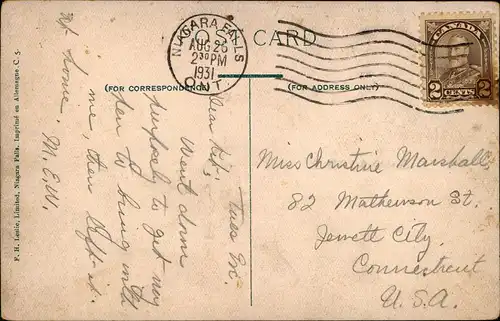 POST CARD
NIAGARA FALLS
AUG 26
2 30 PM
1931
ONT.
CANADA
2 CENTS 2
(FOR CORRESPONDENCE)
(FOR ADDRESS ONLY)
Tues Eve.
Dear Kid;
Went down
purposely to get my
pen to bring with
me, then left it
at home. M.E.W.
Miss Christine Marshall,
82 Mathewson St.
Jewett City,
Connecticut
U.S.A.
F. H. Leslie, Limited, Niagara Falls. Imprimé en Allemagne C. S.